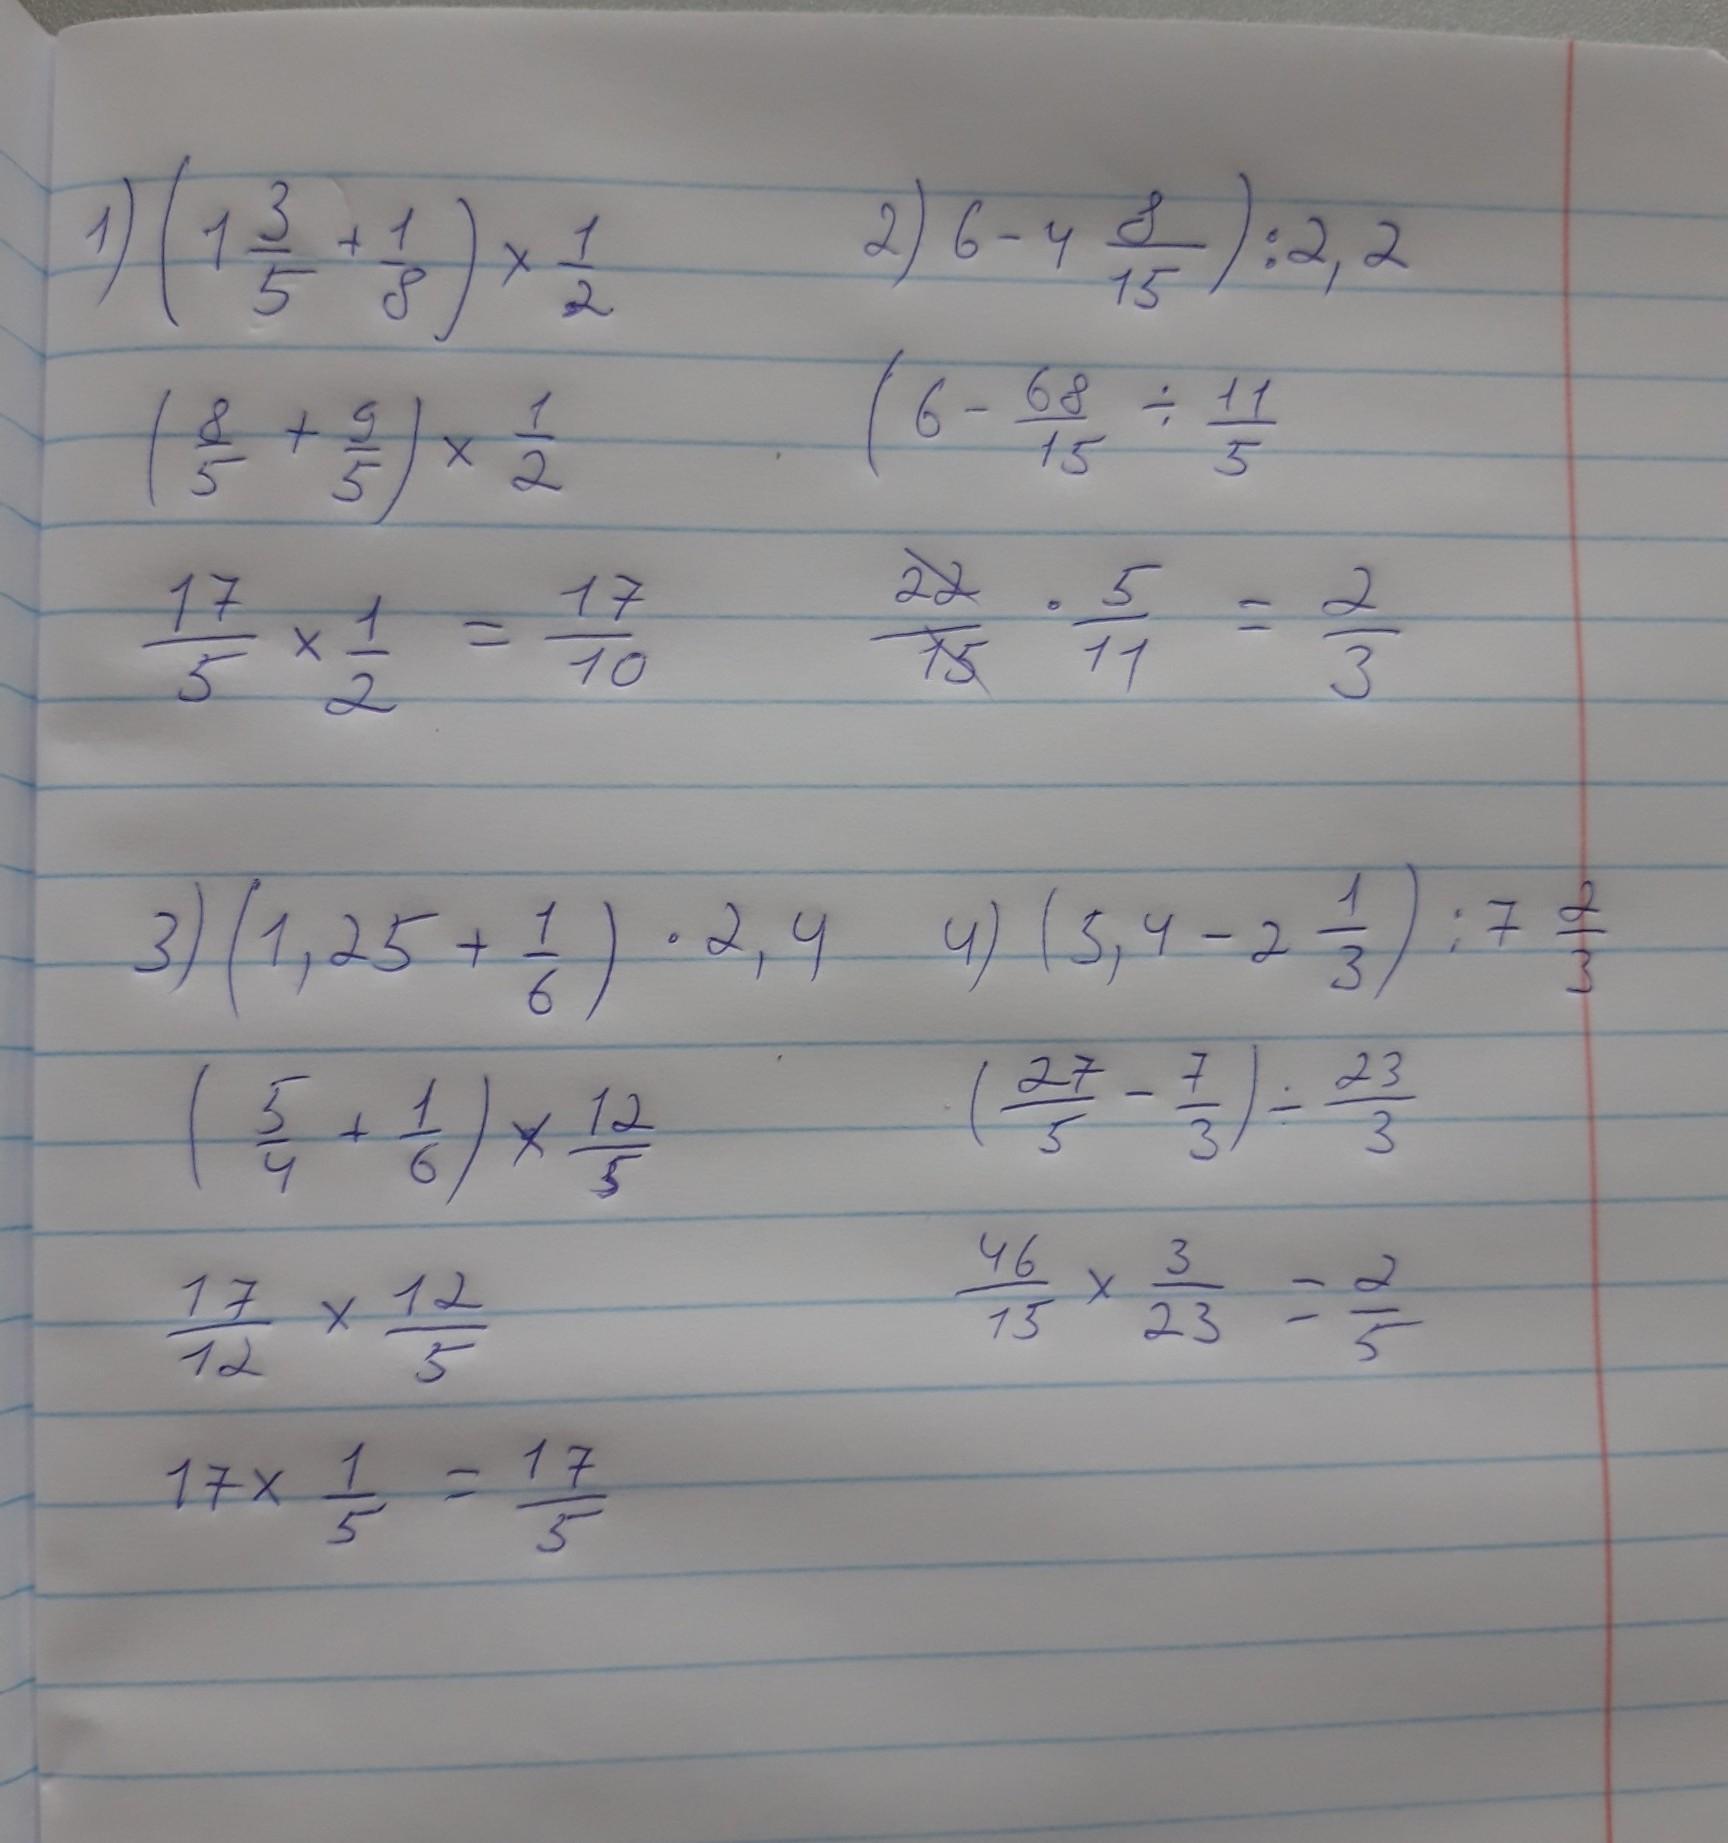 1) (1 3/5 + 1/8) × 1/2
(8/5 + 9/5) × 1/2
17/5 × 1/2 = 17/10
2) 6 - 4 8/15) : 2,2
(6 - 68/15 ÷ 11/5
22/15 · 5/11 = 2/3
3) (1,25 + 1/6) · 2,4
(5/4 + 1/6) × 12/5
17/12 × 12/5
17 × 1/5 = 17/5
4) (5,4 - 2 1/3) : 7 2/3
(27/5 - 7/3) ÷ 23/3
46/15 × 3/23 = 2/5